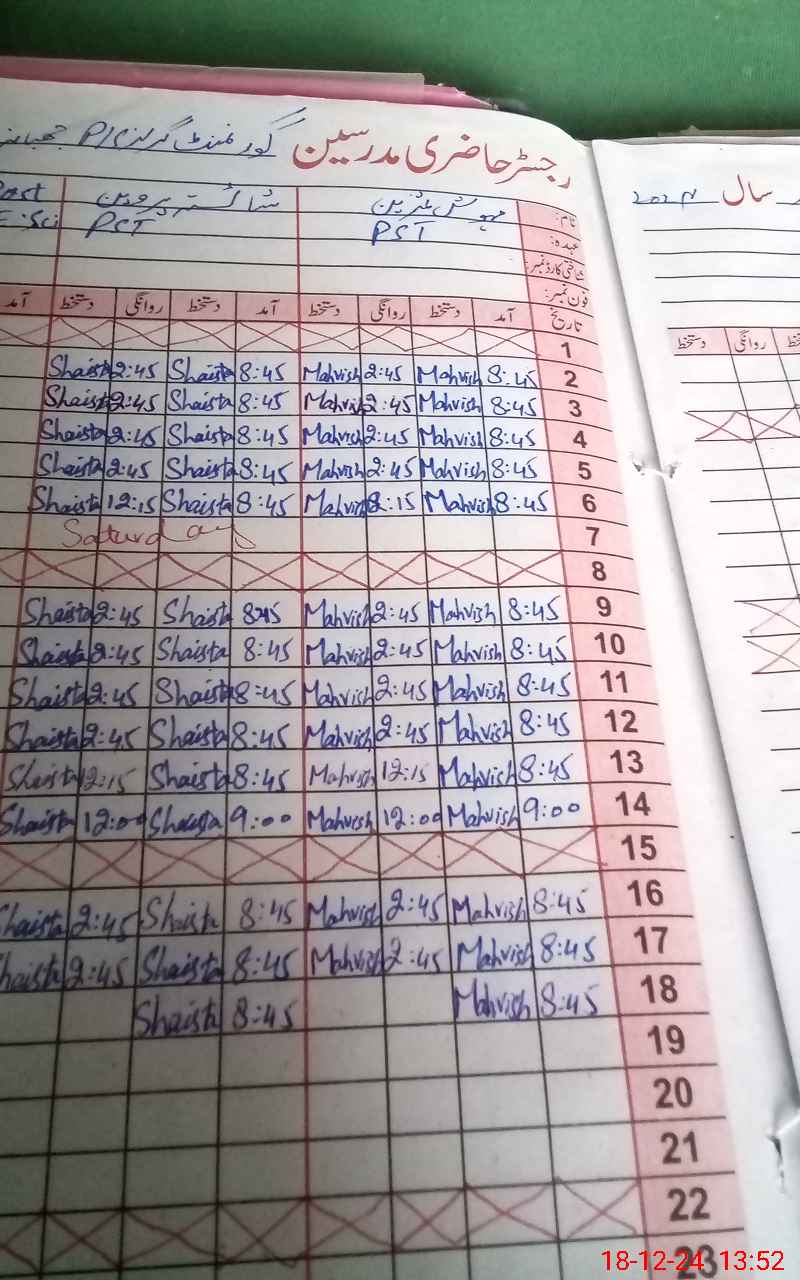 رجسٹر حاضری مدرسین گورنمنٹ گرلز P/S
سال 2024
نام: مہوش شیریں شائستہ پروین
عہدہ: PST PST E.Sci
شناختی کارڈ نمبر:
فون نمبر:
تاریخ آمد دستخط روانگی دستخط آمد دستخط روانگی دستخط آمد
دستخط روانگی
1
Shaista 2:45 Shaista 8:45 Mahvish 2:45 Mahvish 8:45 2
Shaista 2:45 Shaista 8:45 Mahvish 2:45 Mahvish 8:45 3
Shaista 2:45 Shaista 8:45 Mahvish 2:45 Mahvish 8:45 4
Shaista 2:45 Shaista 8:45 Mahvish 2:45 Mahvish 8:45 5
Shaista 12:15 Shaista 8:45 Mahvish 12:15 Mahvish 8:45 6
Saturday 7
8
Shaista 2:45 Shaista 8:45 Mahvish 2:45 Mahvish 8:45 9
Shaista 2:45 Shaista 8:45 Mahvish 2:45 Mahvish 8:45 10
Shaista 2:45 Shaista 8:45 Mahvish 2:45 Mahvish 8:45 11
Shaista 2:45 Shaista 8:45 Mahvish 2:45 Mahvish 8:45 12
Shaista 12:15 Shaista 8:45 Mahvish 12:15 Mahvish 8:45 13
Shaista 12:00 Shaista 9:00 Mahvish 12:00 Mahvish 9:00 14
15
Shaista 2:45 Shaista 8:45 Mahvish 2:45 Mahvish 8:45 16
Shaista 2:45 Shaista 8:45 Mahvish 2:45 Mahvish 8:45 17
Shaista 8:45 Mahvish 8:45 18
19
20
21
22
23
18-12-24 13:52